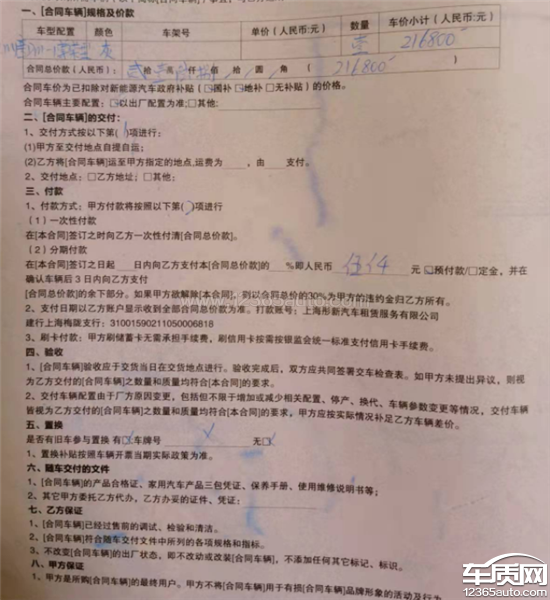 一、[合同车辆]规格及价款
车型配置 颜色 车架号 单价（人民币:元） 数量 车价小计（人民币:元）
灰 壹 216800
合同总价款（人民币）： 拾 万 仟 佰 拾 圆 角（ 216800 ）
合同车价为已扣除对新能源汽车政府补贴（☑国补 ☑地补 □无补贴）的价格。
合同车辆主要配置：☑以出厂配置为准；□其他：
二、[合同车辆]的交付：
1、交付方式按以下第( )项进行：
(1)甲方至交付地点自提自运；
(2)乙方将[合同车辆]运至甲方指定的地点,运费为 ，由 支付。
2、交付地点：□乙方地址；□其他：
三、付款
1、付款方式：甲方付款将按照以下第( )项进行
（1）一次性付款
在[本合同]签订之时向乙方一次性付清[合同总价款]。
（2）分期付款
在[本合同]签订之日起 日内向乙方支付本[合同总价款]的 %即人民币 伍仟 元 ☑预付款/□定金，并在
确认车辆后3日内向乙方支付
[合同总价款]的余下部分。如果甲方欲解除[本合同]，则以合同总价的30%为甲方的违约金归乙方所有。
2、支付日期以乙方账户显示收到全部合同总价款为准。打款账号：上海彤新汽车租赁服务有限公司
建行上海梅陇支行：31001590211050006818
3、刷卡付款：甲方刷储蓄卡无需承担手续费，刷信用卡按需按银监会统一标准支付信用卡手续费。
四、验收
1、[合同车辆]验收应于交货当日在交货地点进行。验收完成后，双方应共同签署交车检查表。如甲方未提出异议，则视
为乙方交付的[合同车辆]之数量和质量均符合[本合同]的要求。
2、交付车辆配置由于厂方原因变更，包括但不限于增加或减少相关配置、停产、换代、车辆参数变更等情况，交付车辆
皆视为乙方交付的[合同车辆]之数量和质量均符合[本合同]的要求，甲方应按实际情况补足乙方车辆差价。
五、置换
是否有旧车参与置换 有□车牌号 无□
1、置换补贴按照车辆开票当期实际政策为准。
六、随车交付的文件
1、[合同车辆]的产品合格证、家用汽车产品三包凭证、保养手册、使用维修说明书等；
2、其它甲方委托乙方代办，乙方办妥的证件、凭证：
七、乙方保证
1、[合同车辆]已经过售前的调试、检验和清洁。
2、[合同车辆]符合随车交付文件中所列的各项规格和指标。
3、不改变[合同车辆]的出厂状态，即不改动或改装[合同车辆]，不添加任何其它标记、标识。
八、甲方保证
1、甲方是所购[合同车辆]的最终用户。甲方不将[合同车辆]用于有损[合同车辆]品牌形象的活动及行为
车质网
12365auto.com